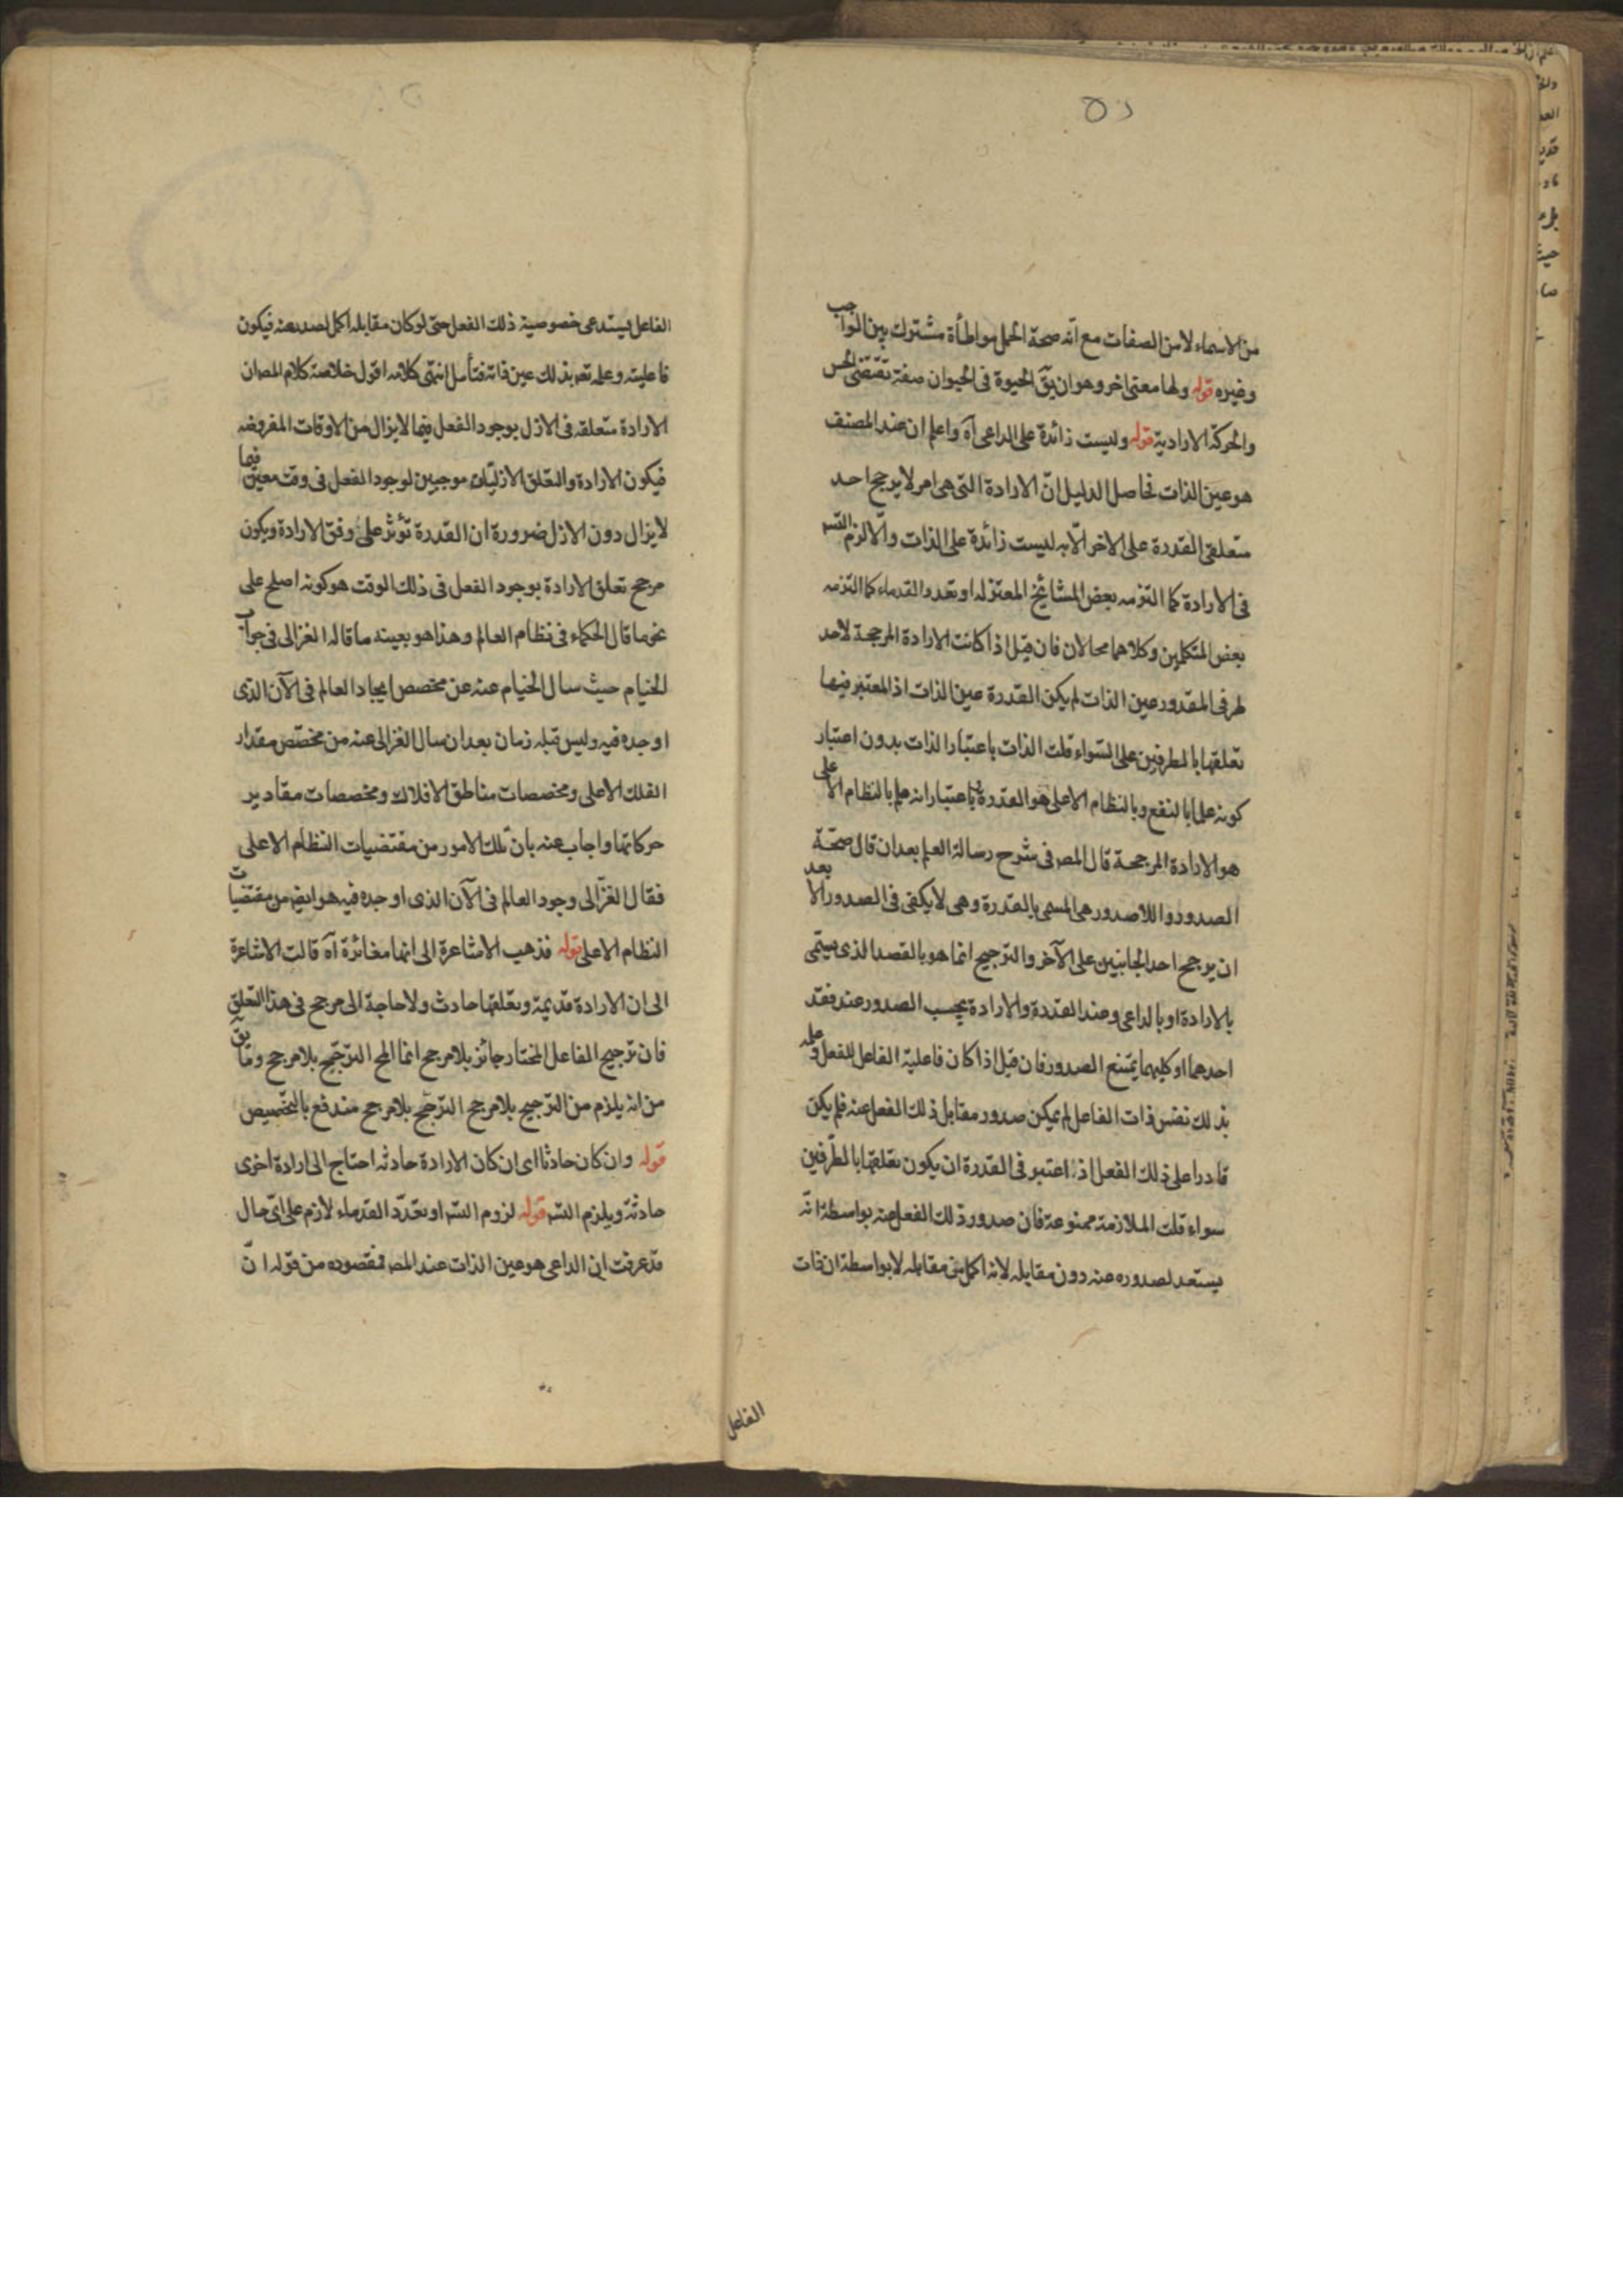 ٥٢
من الاسماء لا من الصفات مع انّه صحة الحمل مواطأة مشترك بين الواجب
وغيره قوله ولها معنى اخر وهو ان يقّ الحيوة فى الحيوان صفة تقتضى الحس
والحركة الارادية قوله وليست زائدة على الداعى آه واعلم ان عند المصنف
هو عين الذات فحاصل الدليل انّ الارادة التى هى امر لا يرجح احد
متعلقى القدرة على الاخر الّا به ليست زائدة على الذات والّا لزم التسه
فى الارادة كما التزمه بعض المشائخ المعتزله او تعدد القدماء كما التزمه
بعض المتكلمين وكلاهما محالان فان قيل اذا كانت الارادة المرجحة لاحد
طرفى المقدور عين الذات لم يكن القدرة عين الذات اذ المعتبر فيها
تعلقها بالطرفين على السّواء قلت الذات باعتبار الذات بدون اعتبار
كونه علما بالنفع وبالنظام الاعلى هو القدرة وباعتبار انه علم بالنظام الاعلى
هو الارادة المرجحة قال المصـ فى شرح رسالة العلم بعد ان قال صحّة
الصدور واللاصدور هى المسمى بالقدرة وهى لا يكفى فى الصدور الا بعد
ان يرجح احد الجانبين على الآخر والترجيح انما هو بالقصد الذى يسمّى
بالارادة او بالداعى وعند القدرة والارادة يجب الصدور عند فقد
احدهما او كليهما يمتنع الصدور فان قيل اذا كان فاعلية الفاعل للفعل وعلمه
بذلك نفس ذات الفاعل لم يمكن صدور مقابل ذلك الفعل عنه فلم يكن
قادرا على ذلك الفعل اذ اعتبر فى القدرة ان يكون تعلقها بالطّرفين
سواء قلت الملازمة ممنوعة فان صدور ذلك الفعل عنه بواسطة انّه
يستعد لصدوره عنه دون مقابله لانه اكمل من مقابله لا بواسطة ان ذات
الفاعل
الفاعل يستدعى خصوصية ذلك الفعل حتى لو كان مقابله اكمل لصدر عنه فيكون
فاعليته وعلمه بذلك عين ذاته فتأمل انتهى كلامه اقول خلاصة كلام المصـ ان
الارادة متعلقه فى الازل بوجود الفعل فيما لا يزال من الاوقات المفروضه
فيكون الارادة والتعلق الازليّان موجبين لوجود الفعل فى وقت معين فيما
لا يزال دون الازل ضرورة ان القدرة تؤثر على وفق الارادة ويكون
مرجح تعلق الارادة بوجود الفعل فى ذلك الوقت هو كونه اصلح على
نحو ما قال الحكماء فى نظام العالم وهذا هو بعينه ما قاله الغزالى فى جواب
الخيام حيث سال الخيام عنه عن مخصص ايجاد العالم فى الآن الذى
اوجده فيه وليس قبله زمان بعد ان سال الغزالى عنه من مخصّص مقدار
الفلك الاعلى ومخصصات مناطق الافلاك ومخصصات مقادير
حركاتها واجاب عنه بانّ تلك الامور من مقتضيات النظام الاعلى
فقال الغزّالى وجود العالم فى الآن الذى اوجده فيه هو ايضا من مقتضيات
النظام الاعلى قوله فذهب الاشاعرة الى انها مغائرة آه قالت الاشاعرة
الى ان الارادة قديمة وتعلقها حادث ولا حاجة الى مرجح فى هذا التعلق
فان ترجيح الفاعل المختار جائز بلا مرجح انما المح الترجّح بلا مرجح وما يقّ
من انه يلزم من الترجيح بلا مرجح الترجّح بلا مرجح مندفع بالتخصيص
قوله وان كان حادثا اى ان كان الارادة حادثه احتاج الى ارادة اخرى
حادثة ويلزم التسه قوله لزوم التسه او تعدّد القدماء لازم على اىّ حال
قد عرفت ان الداعى هو عين الذات عند المصـ فمقصوده من قوله انّ